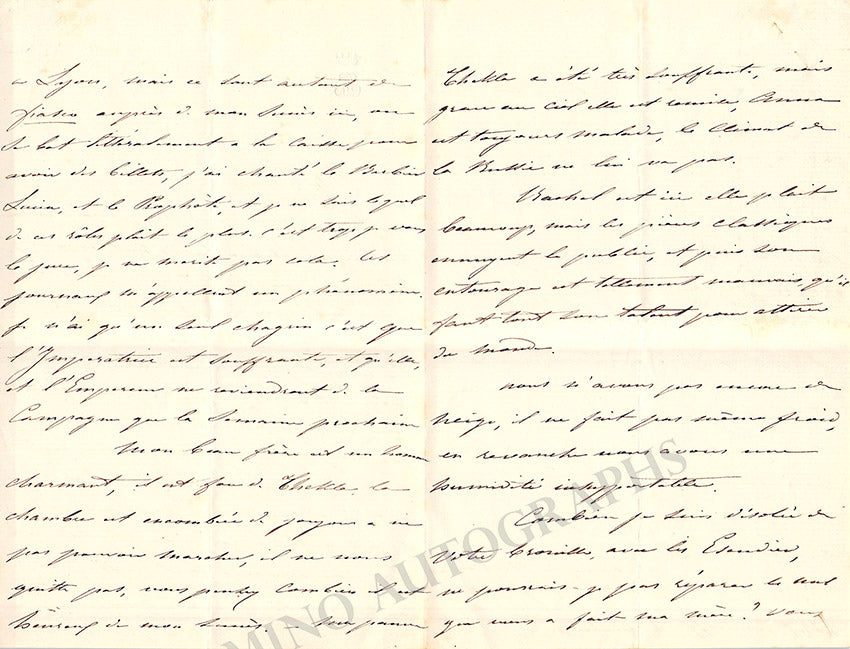 a Lyon, mais ce sont autant de
fiasco auprès de mon succès ici, on
se bat littéralement a la caisse pour
avoir des billets, j'ai chanté le Barbier
Lucia, et le Prophète, et je ne sais lequel
de ces rôles plait le plus. c'est trop je vous
le jure, je ne merite pas cela. les
journaux m'appellent un phénomène.
Je n'ai qu'un seul chagrin c'est que
l'Imperatrice est souffrante, et qu'elle,
et l'Empereur ne reviendront de la
Campagne que la Semaine prochaine
Mon beau frère est un homme
charmant, il est fou de Thekla la
chambre est encombrée de joujoux a ne
pas pouvoir marcher, il ne nous
quitte pas, vous pensez combien il est
heureux de mon succès. – Sa pauvre
Thekla a été très souffrante, mais
grace au ciel elle est remise, Anna
est toujours malade, le Climat de
la Russie ne lui va pas.
Rachel est ici elle plait
beaucoup, mais les pièces classiques
ennuyent le public, et puis son
entourage est tellement mauvais, qu'il
faut tout son talent pour attirer
du monde.
nous n'avons pas encore de
neige, il ne fait pas même froid,
en revanche nous avons une
humidité insupportable.
Combien je suis désolée de
votre brouille, avec les Escudier,
ne pourrais-je pas réparer le mal
que vous a fait ma mère? Vous
MINO AUTOGRAPHS